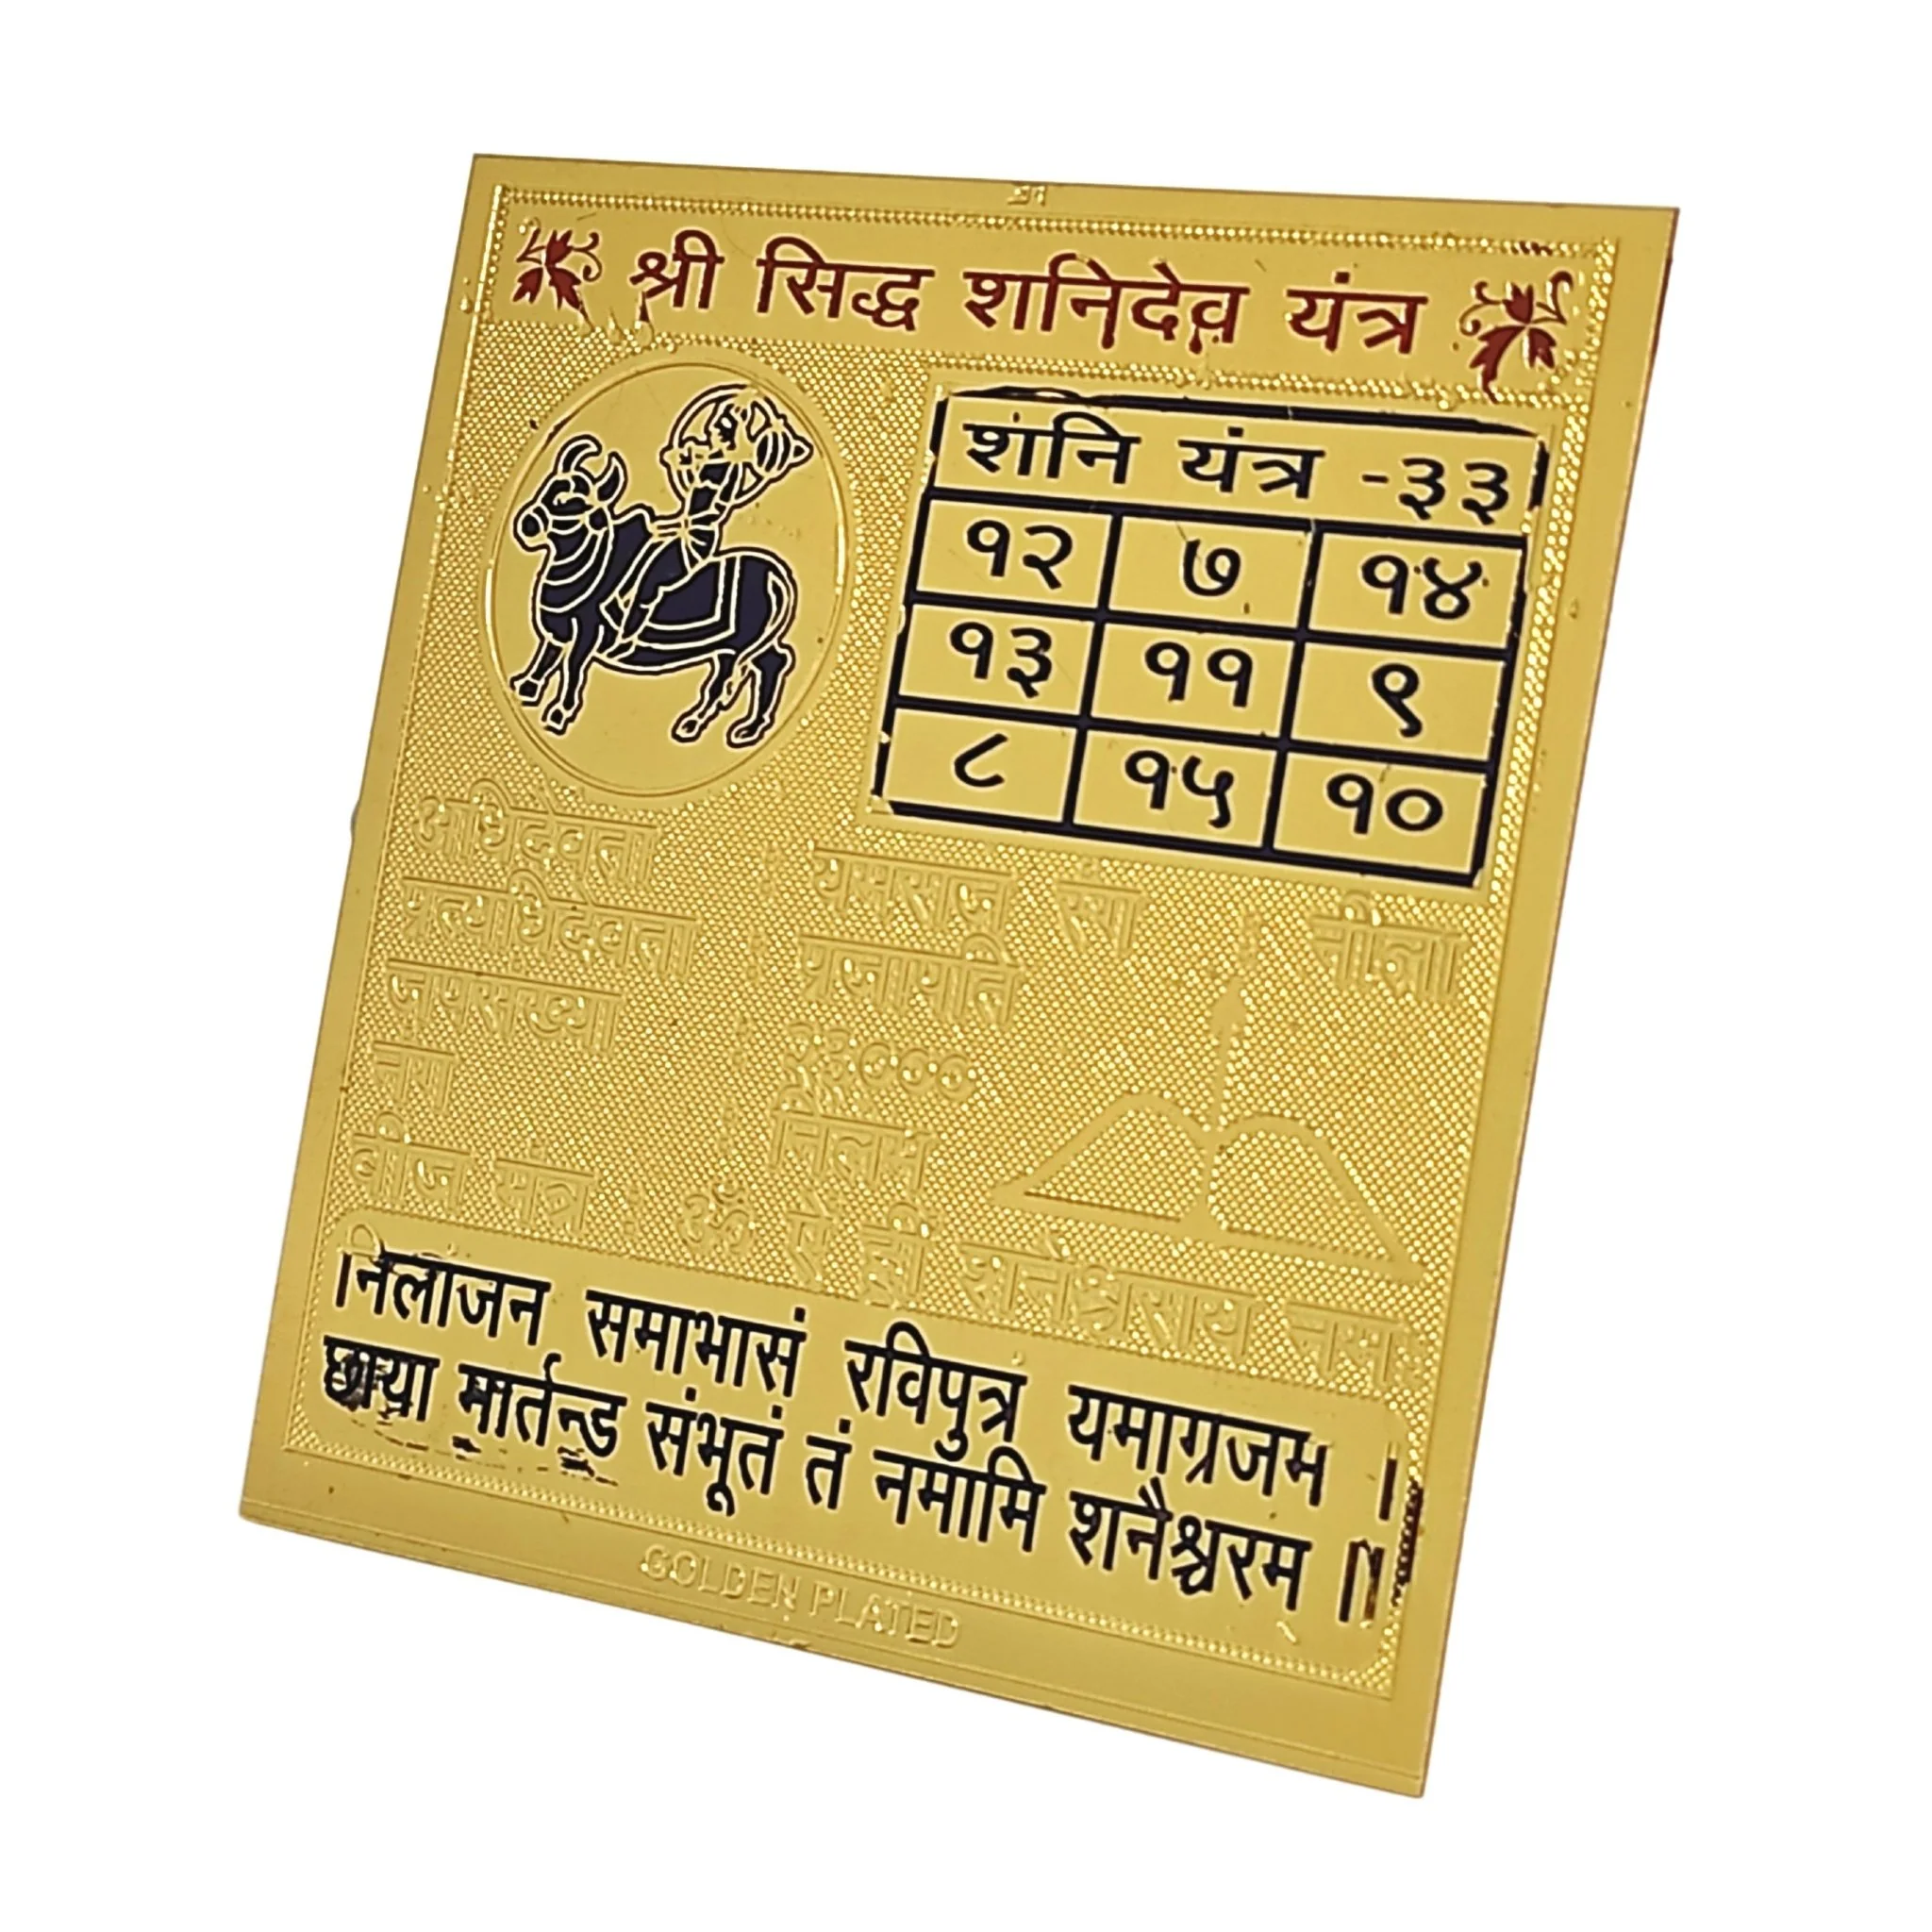 श्री सिद्ध शनिदेव यंत्र
शनि यंत्र -३३
१२ ७ १४
१३ ११ ९
८ १५ १०
अधिदेवता : यमराज
प्रत्याधिदेवता : प्रजापति
जपसंख्या : २३०००
बीज मंत्र : ॐ
निलांजन समाभासं रविपुत्रं यमाग्रजम ।
छाया मार्तन्ड संभूतं तं नमामि शनैश्चरम् ॥
GOLDEN PLATED